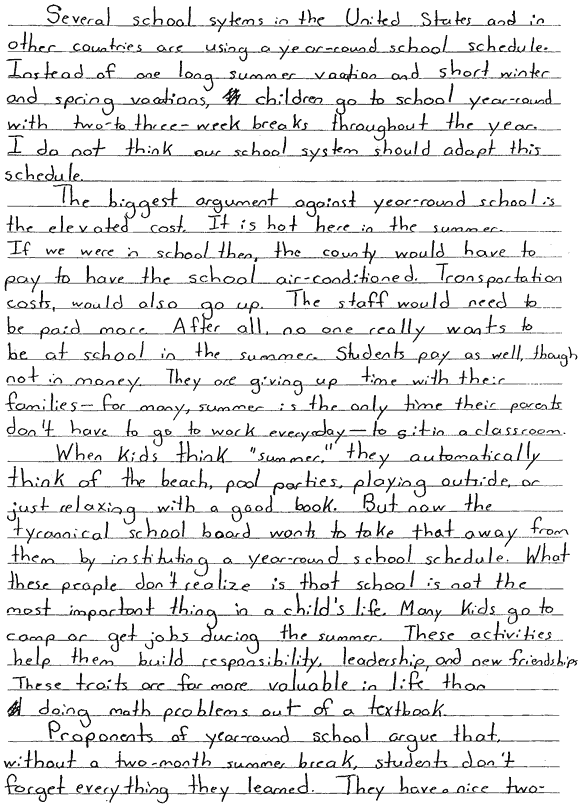 Several school sytems in the United States and in
other countries are using a year-round school schedule.
Instead of one long summer vaation and short winter
and spring vacations, children go to school year-round
with two-to three-week breaks throughout the year.
I do not think our school system should adopt this
schedule.
The biggest argument against year-round school is
the elevated cost. It is hot here in the summer.
If we were in school then, the county would have to
pay to have the school air-conditioned. Transportation
costs, would also go up. The staff would need to
be paid more. After all, no one really wants to
be at school in the summer. Students pay as well, though
not in money. They are giving up time with their
families—for many, summer is the only time their parents
don't have to go to work everyday—to sit in a classroom.
When kids think "summer," they automatically
think of the beach, pool parties, playing outside, or
just relaxing with a good book. But now the
tyrannical school board wants to take that away from
them by instituting a year-round school schedule. What
these people don't realize is that school is not the
most important thing in a child's life. Many kids go to
camp or get jobs during the summer. These activities
help them build responsibility, leadership, and new friendships
These traits are far more valuable in life than
doing math problems out of a textbook.
Proponents of year-round school argue that,
without a two-month summer break, students don't
forget everything they learned. They have a nice two-